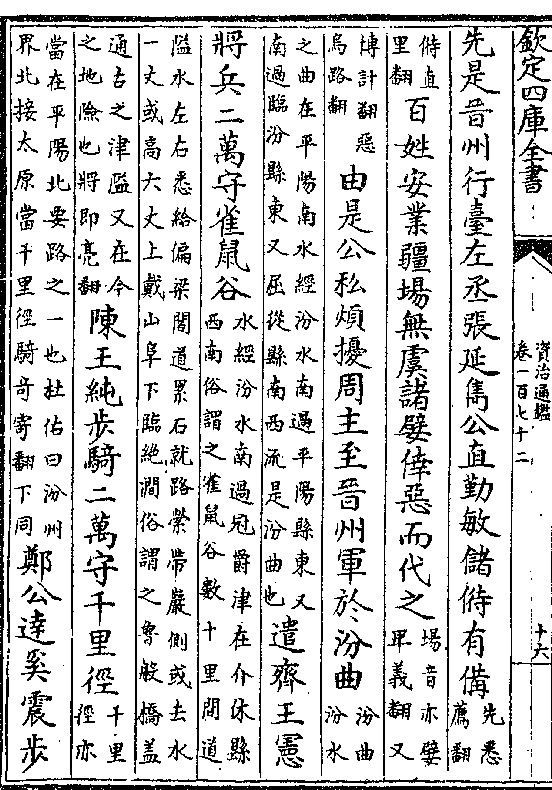 欽定四庫全書
資治通鑑
卷一百七十二
十六
先是晉州行臺左丞張延雋公直勤敏儲偫有備先悉薦翻
偫直里翻百姓安業疆埸無虞諸嬖倖惡而代之埸音亦嬖卑義翻又
博計翻惡烏路翻由是公私煩擾周主至晉州軍於汾曲汾曲汾水
之曲在平陽南水經汾水南過平陽縣東又南過臨汾縣東又屈從縣南西流是汾曲也遣齊王憲
將兵二萬守雀鼠谷水經汾水南過冠爵津在介休縣西南俗謂之雀鼠谷數十里間道
隘水左右悉給偏梁閣道累石就路縈帶巖側或去水一丈或高六丈上戴山阜下臨絶澗俗謂之魯般橋盖
通古之津隘又在今之地險也將即亮翻陳王純步騎二萬守千里徑千里徑亦
當在平陽北要路之一也杜佑曰汾州界北接太原當千里徑騎奇寄翻下同鄭公達奚震步